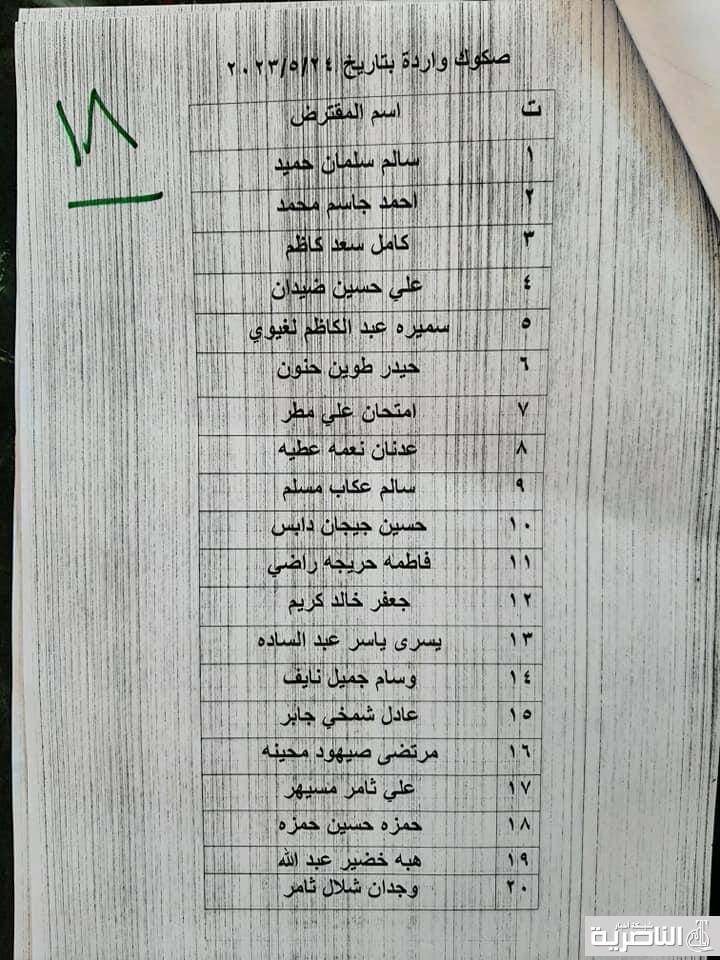 صكوك واردة بتاريخ ٢٠٢٣/٥/٢٤
١٨
ت اسم المقترض
١ سالم سلمان حميد
٢ احمد جاسم محمد
٣ كامل سعد كاظم
٤ علي حسين ضيدان
٥ سميره عبد الكاظم لغيوي
٦ حيدر طوين حنون
٧ امتحان علي مطر
٨ عدنان نعمه عطيه
٩ سالم عكاب مسلم
١٠ حسين جيجان دابس
١١ فاطمه حريجه راضي
١٢ جعفر خالد كريم
١٣ يسرى ياسر عبد الساده
١٤ وسام جميل نايف
١٥ عادل شمخي جابر
١٦ مرتضى صيهود محينه
١٧ علي ثامر مسيهر
١٨ حمزه حسين حمزه
١٩ هبه خضير عبد الله
٢٠ وجدان شلال ثامر
شبكة اخبار
الناصرية